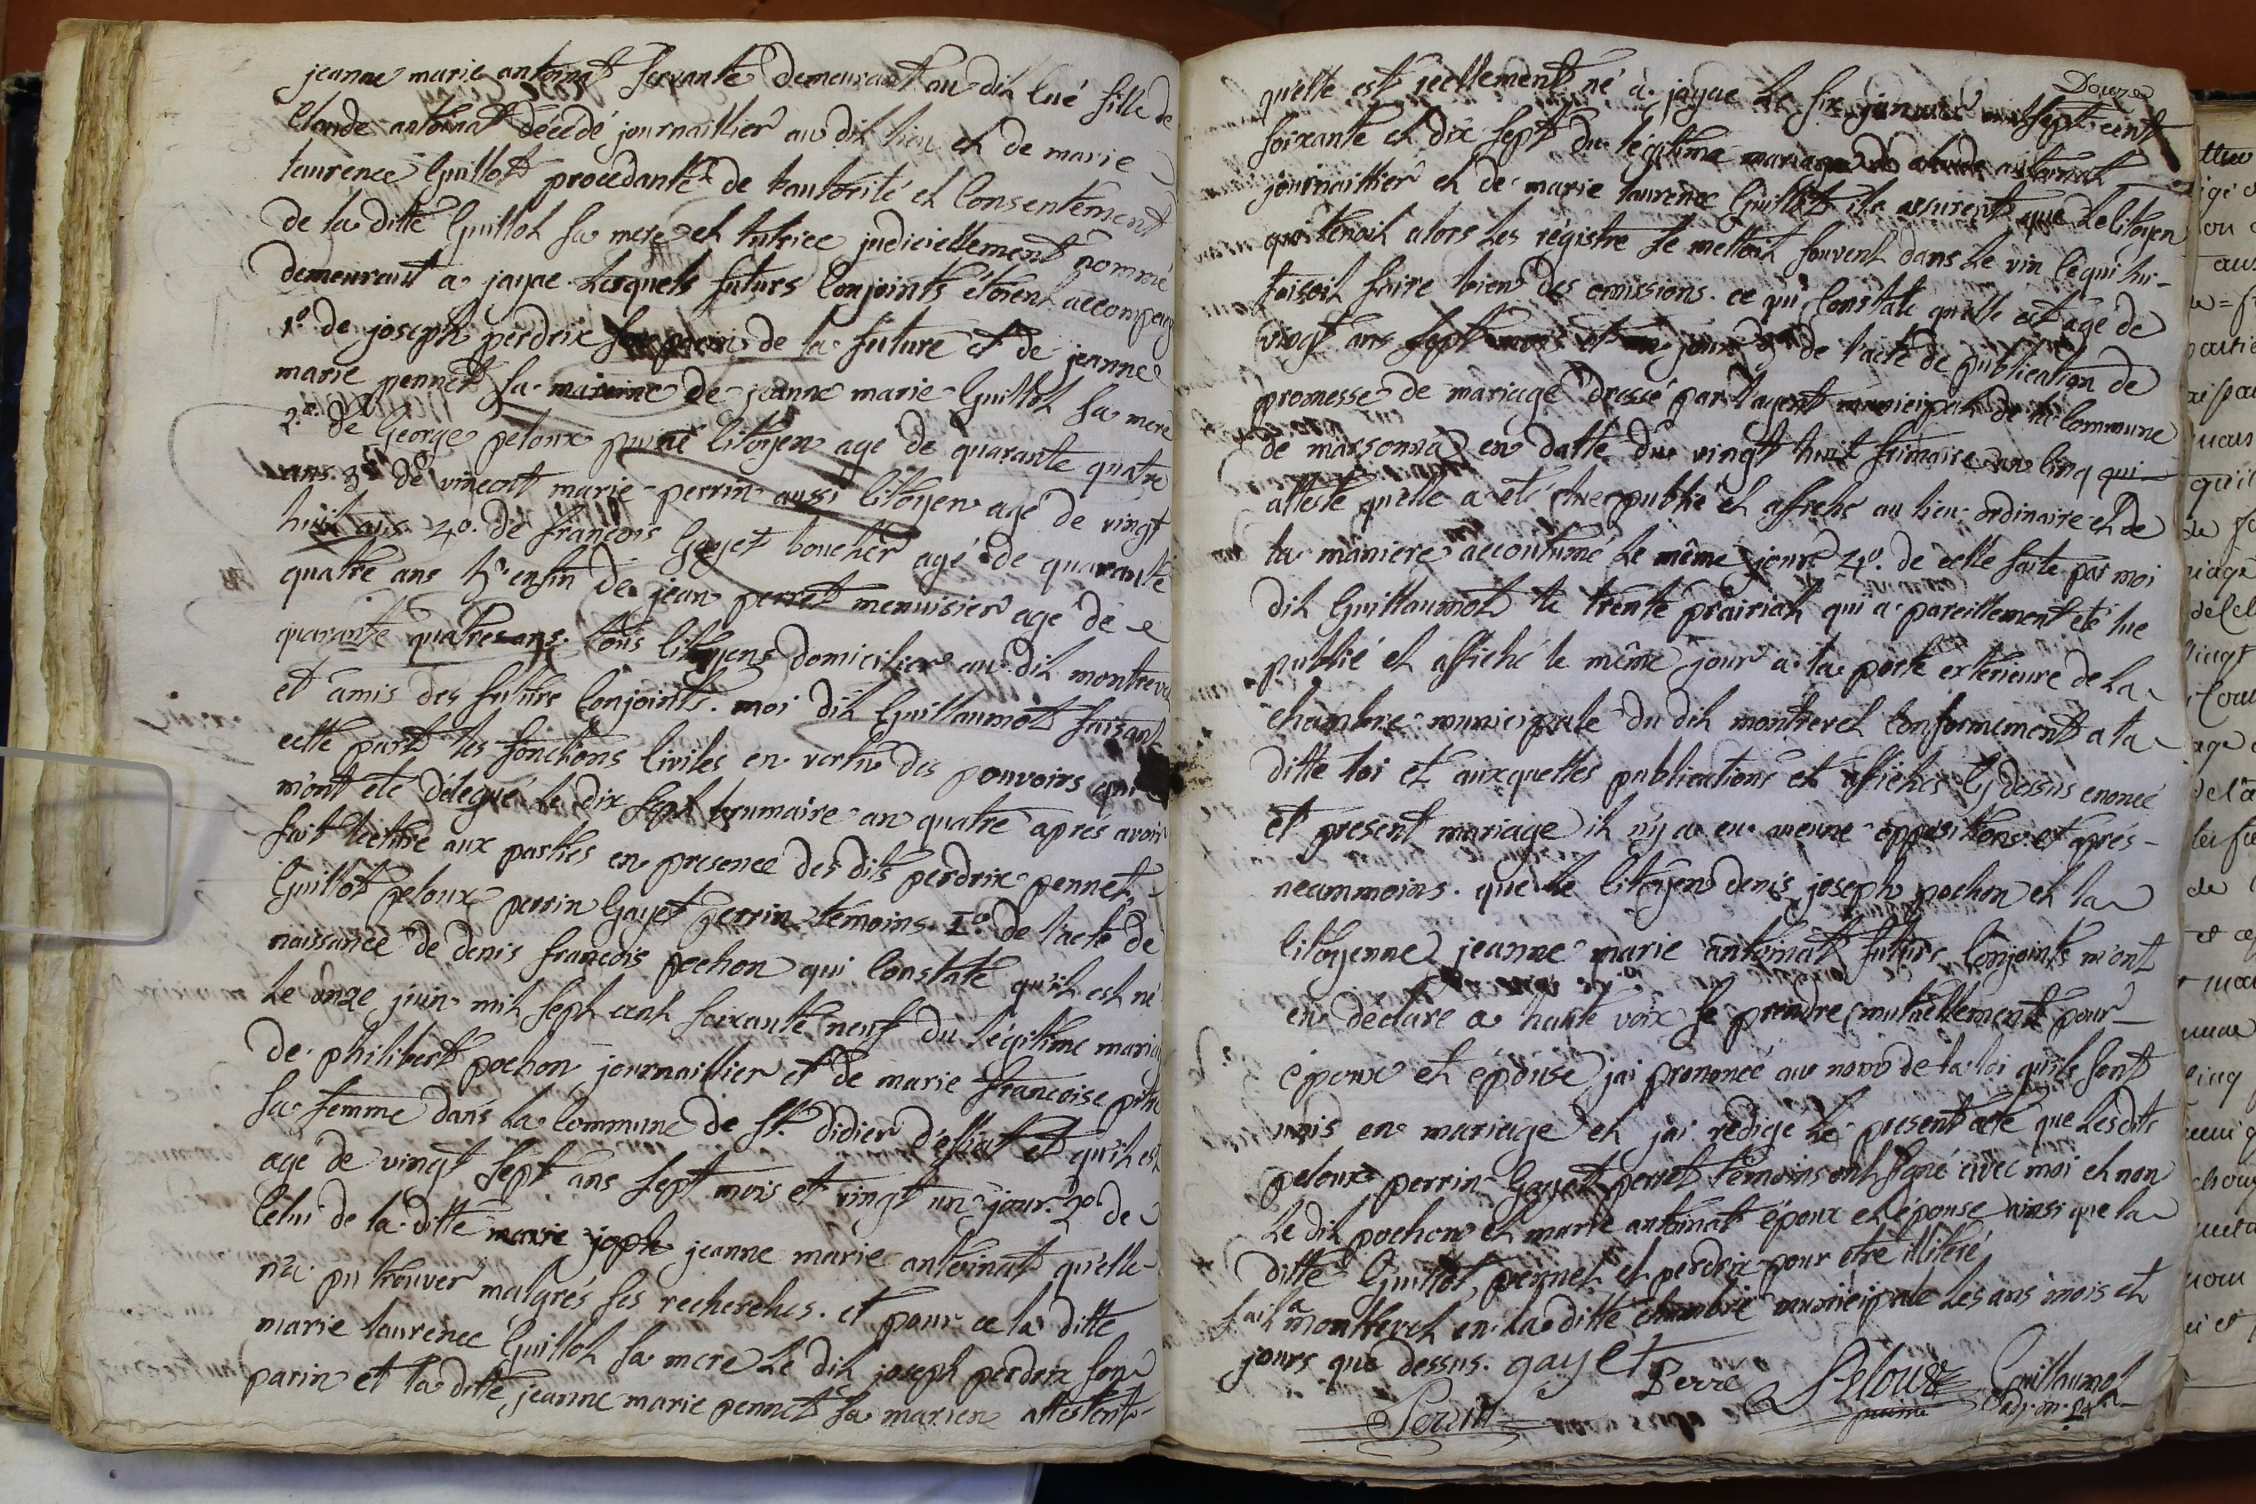 jeanne marie antoinat servante demeurant au dit lué fille de
Claude antoinat décedé journaillier au dit lieu et de marie
laurence Guillot procedante de l'autorité et Consentement
de la ditte Guillot sa mere et tutrice judiciellement nommé
demeurant a jayac lesquels futurs Conjoints étoient accompag
1º. de joseph perdrix son parin de la future et de jeanne
marie pennet sa maraine de jeanne marie Guillot sa mere
2º. de George peloux puiné Citoyen agé de quarante quatre
ans 3º. de vincent marie perrin aussi Citoyen agé de vingt
huit ans 4º. de françois Gayet boucher agé de quarante
quatre ans 5º enfin de jean perret menuisier agé de
quarante quatres ans. tous Citoyens domicilier au dit montrevel
et amis des futurs Conjoints. moi dit Guillaumot faisant
cette part les fonctions Civiles en vertu des pouvoirs qui
m'ont eté délégué le dix sept brumaire an quatre aprés avoir
fait lecture aux parties en presence des dits perdrix pennet
Guillot peloux perrin Gayet perrin témoins. 1º. de l'acte de
naissance de denis françois pochon qui Constate qu'il est né
le onze juin mil sept cent soixante neuf du légitime mariag
de philibert pochon journaillier et de marie françoise pitre
sa femme dans la Commune de St. didier d'essiat et qu'il est
agé de vingt sept ans sept mois et vingt un jour. 2º de
Celui de la ditte marie joph jeanne marie antoinat qu'elle
n'a pu trouver malgrés ses recherches. et pour ce la ditte
marie laurence Guillot sa mere le dit joseph perdrix son
parin et la ditte jeanne marie pennet sa mariene attestent
Douze
qu'elle est reellement né a jayac le six janvier mil sept cent
soixante et dix sept du légitime mariage de claude antoinat
journaillier et de marie laurence Guillot ils assurent que le Citoyen
qui tenoit alors les régistre se mettoit souvent dans le vin Ce qui lui
faisoit faire bien des omissions. ce qui Constate qu'elle est agé de
vingt ans sept mois et jours 3º de l'acte de publication de
promesse de mariage dressé par l'agent municipal de la Commune
de marsonna en datte du vingt huit frimaire an Cinq qui
atteste qu'elle a eté lue publié et affiché au lieu ordinaire et de
la maniere accoutumé le même jour 4º. de celle faite par moi
dit Guillaumot le trente prairial qui a pareillement été lue
publié et affiché le même jour a la porte exterieure de la
chambre municipale du dit montrevel Conformement a la
ditte loi et auxquelles publications et affiches Cy dessus enoncé
et present mariage il n'y a eu aucune oppositions et aprés
neanmoins. que le Citoyen denis joseph pochon et la
Citoyenne jeanne marie antoinat futurs Conjoints m'ont
en déclaré a haute voix se prendre mutuellement pour
époux et épouse j'ai prononcé au nom de la loi qu'ils sont
unis en mariage et j'ai rédigé le present acte que lesdits
peloux perrin Gayet perret témoins ont signé avec moi et non
le dit pochon et marie antoinat époux et épouse ainsi que la
ditte Guillot, pennet et perdrix pour etre illiteré
fait a montrevel en la ditte chambre municipale les ans mois et
jours que dessus. gayet
Perre Peloux Guillaumot
Perrin puiné